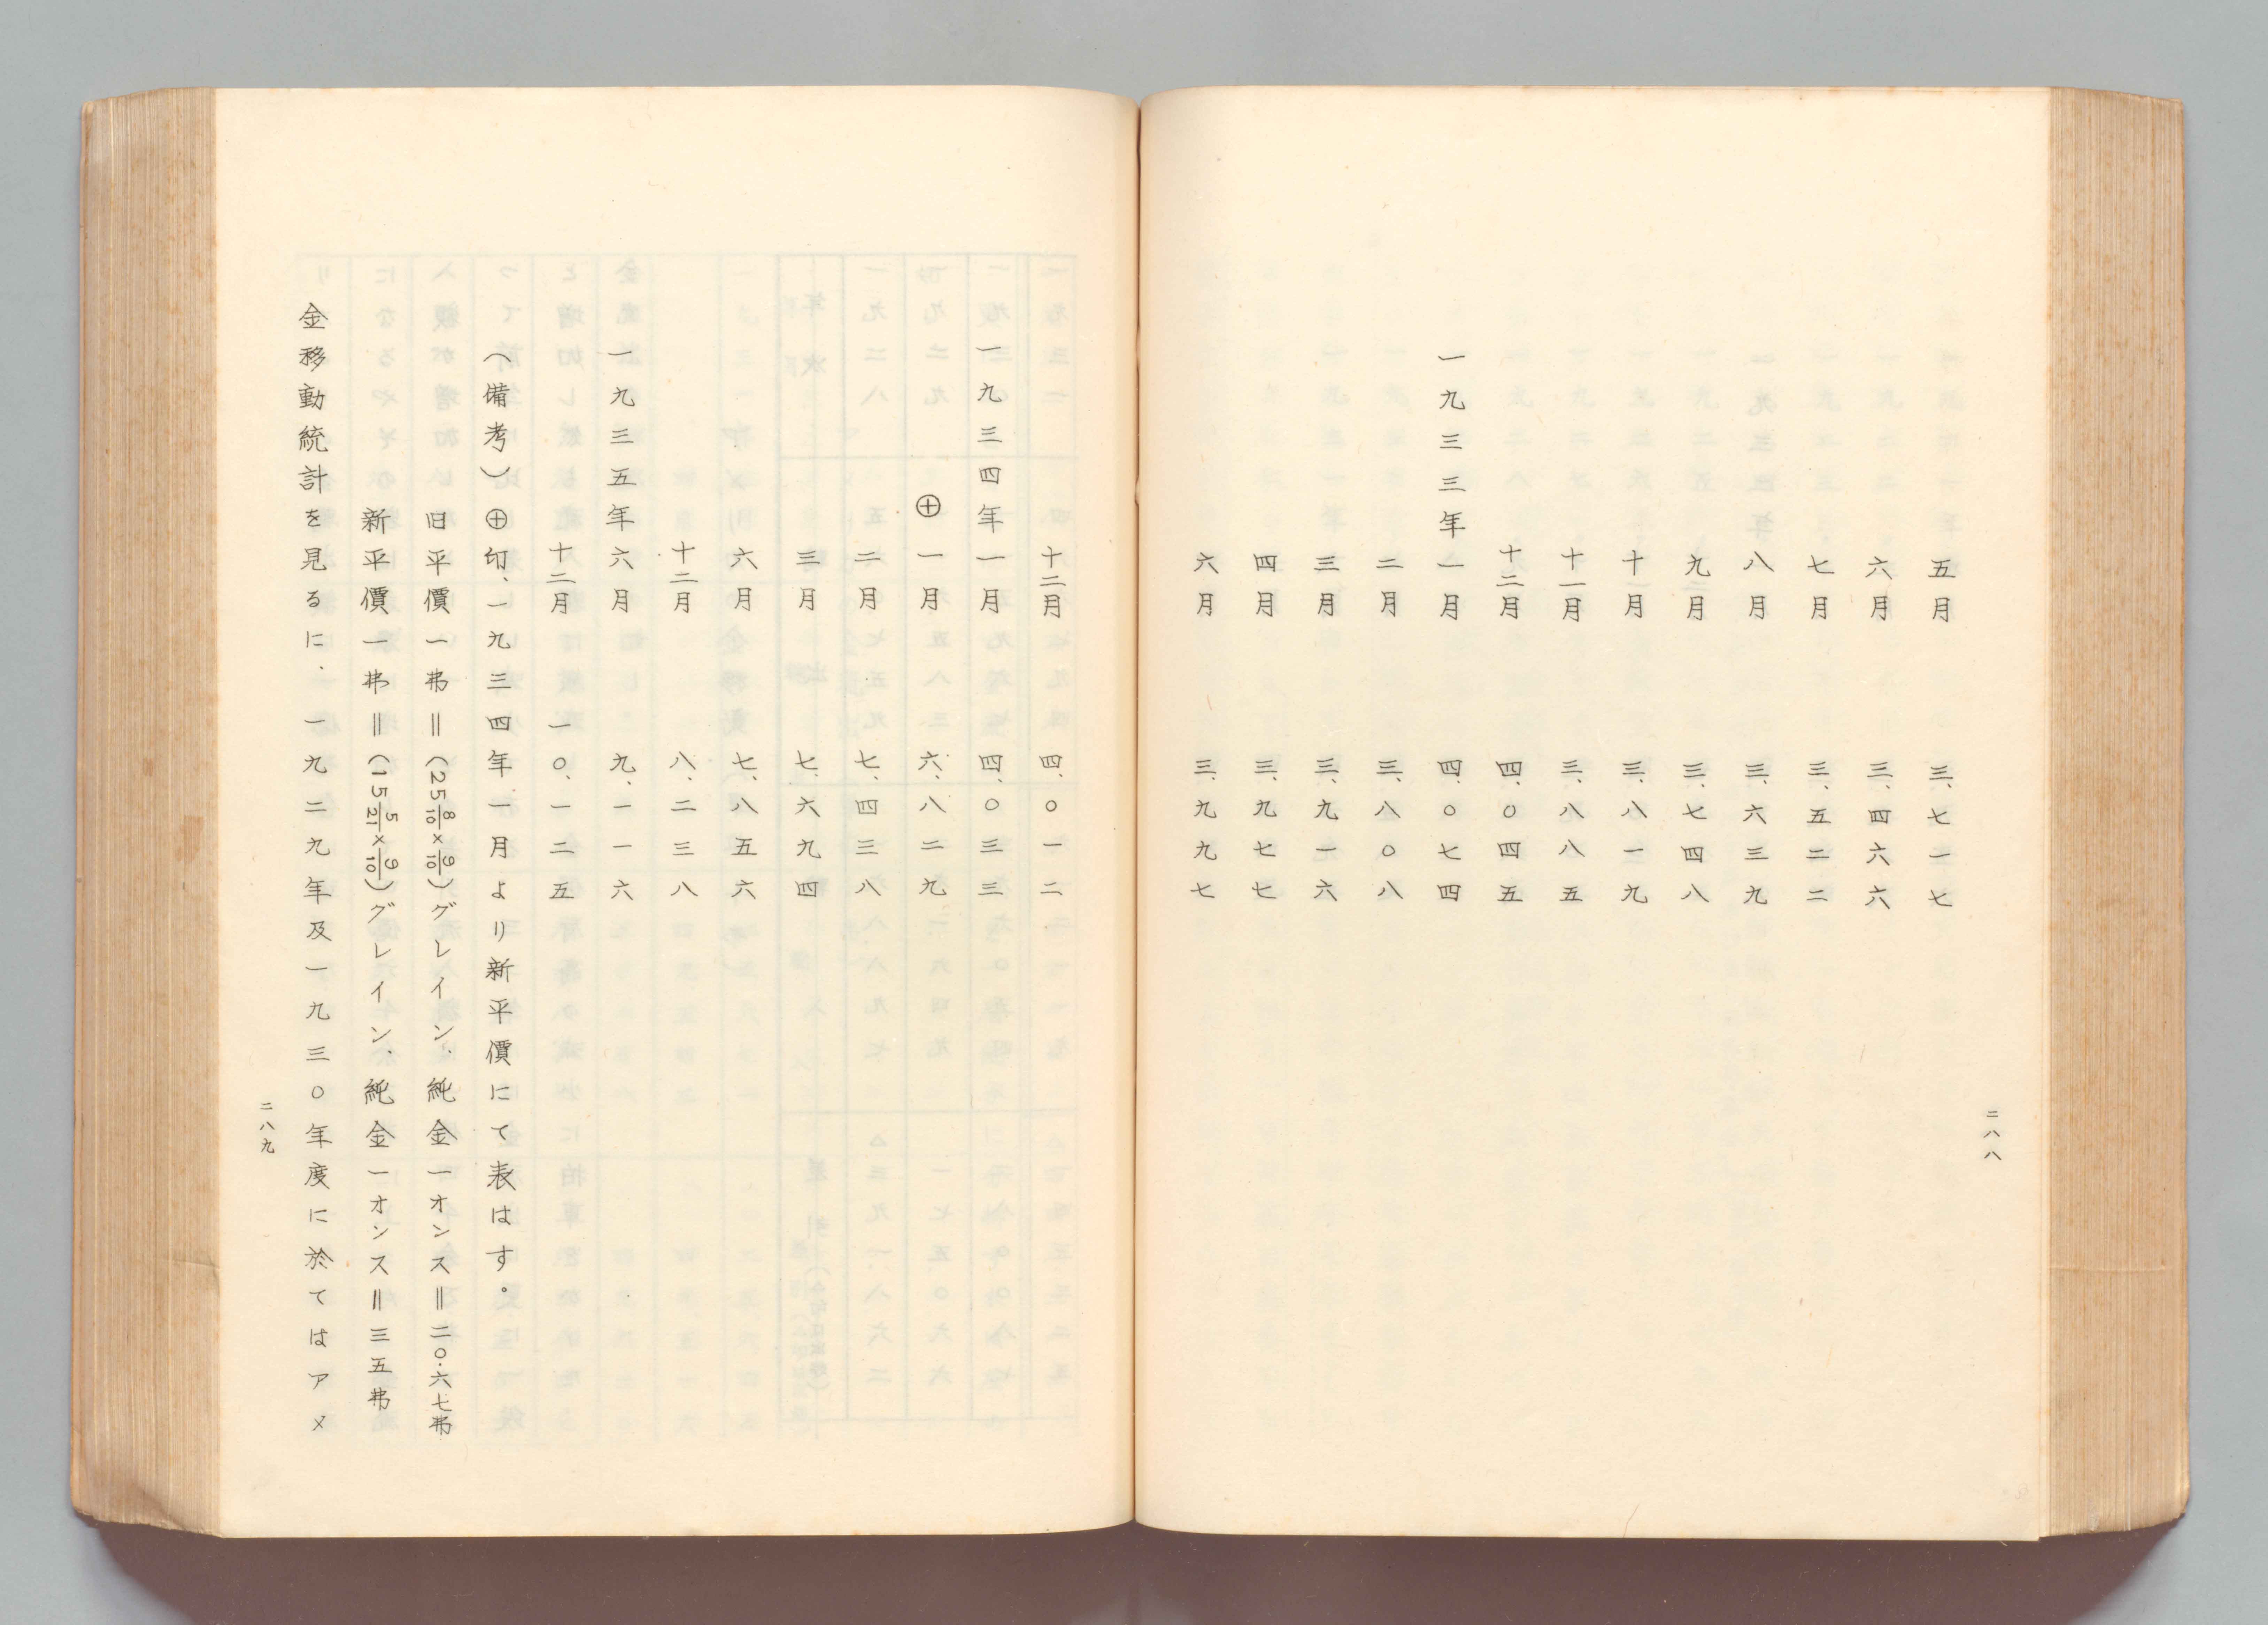 二八八
五月 三、七一七
六月 三、四六六
七月 三、五二二
八月 三、六三九
九月 三、七四八
十月 三、八一九
十一月 三、八八五
十二月 四、〇四五
一九三三年一月 四、〇七四
二月 三、八〇八
三月 三、九一六
四月 三、九七七
六月 三、九九七
十二月 四、〇一二
一九三四年一月 四、〇三三
⊕一月 六、八二九
二月 七、四三八
三月 七、六九四
六月 七、八五六
十二月 八、二三八
一九三五年六月 九、一一六
十二月 一〇、一二五
（備考）⊕印、一九三四年一月より新平價にて表はす。
旧平價一弗＝（25 8/10×9/10）グレイン、純金一オンス＝二〇・六七弗
新平價一弗＝（15 5/21×9/10）グレイン、純金一オンス＝三五弗
金移動統計を見るに、一九二九年及一九三〇年度に於てはアメ
二八九